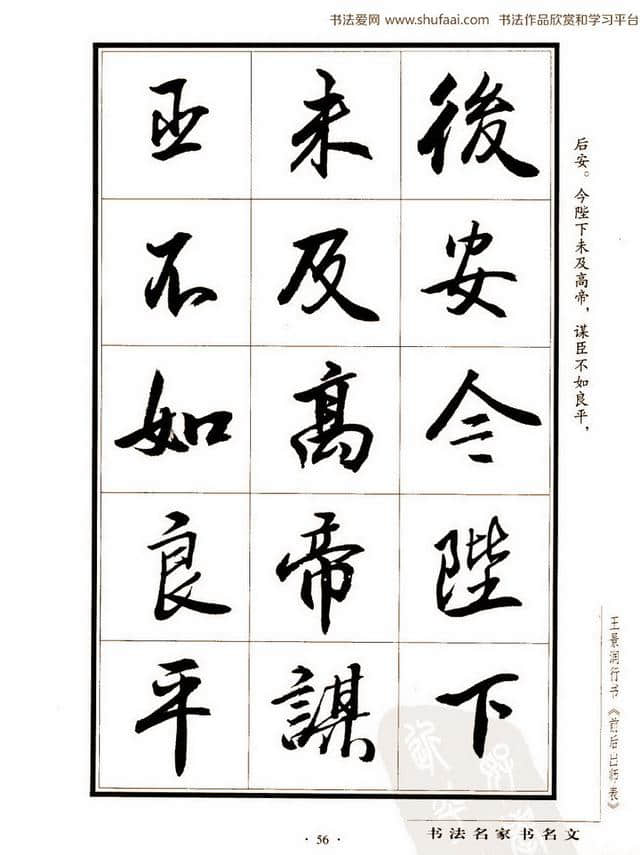 书法爱网 www.shufaai.com 书法作品欣赏和学习平台
後安今陛下
未及高帝謀
臣不如良平
后安。今陛下未及高帝，谋臣不如良平，
王景润行书《前后出师表》
书法名家书名文
· 56 ·